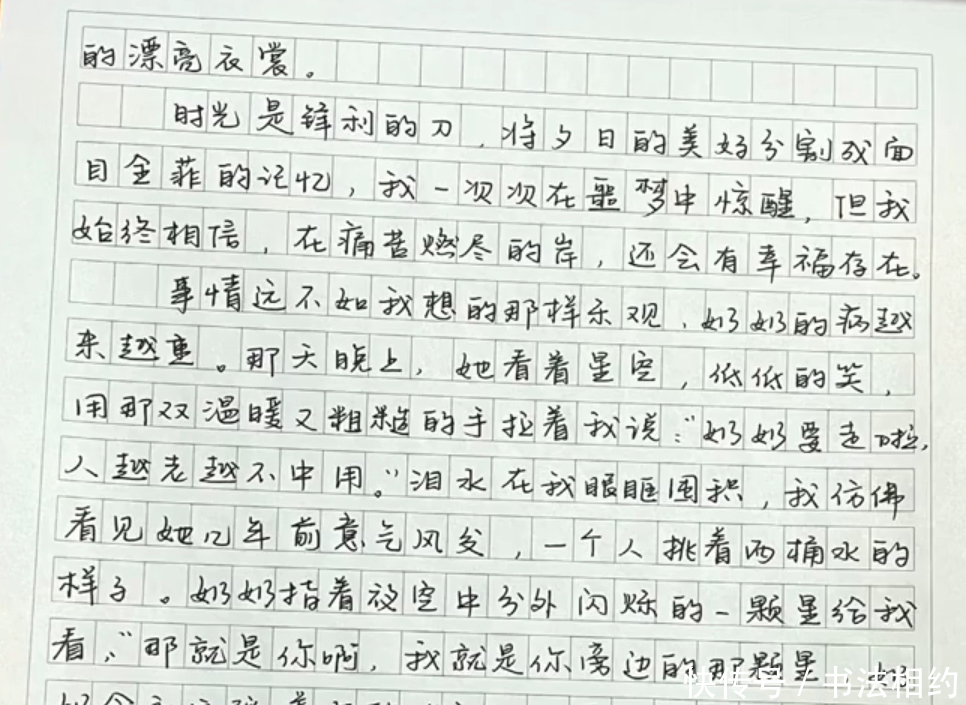 的漂亮衣裳。
时光是锋利的刀,将夕日的美好分割成面
目全菲的记忆,我一次次在噩梦中惊醒,但我
始终相信,在痛苦燃尽的岸,还会有幸福存在。
事情远不如我想的那样乐观、奶奶的病越
来越重。那天晚上,她看着星空,低低的笑,
用那双温暖又粗糙的手拉着我说:“奶奶要走啦,
人越老越不中用。”泪水在我眼眶囤积,我仿佛
看见她几年前意气风发,一个人挑着两桶水的
样子。奶奶指着夜空中分外闪烁的一颗星给我
看:“那就是你啊,我就是你旁边的那颗星
快传号/书法相约